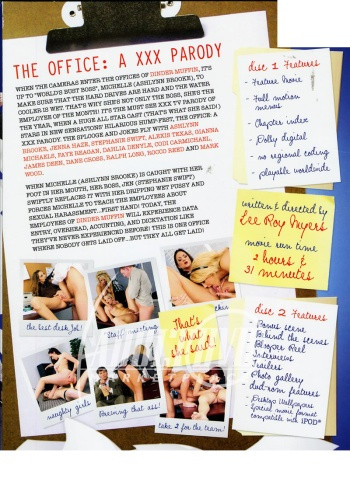 THE OFFICE: A XXX PARODY
WHEN THE CAMERAS ENTER THE OFFICES OF DINDER MUFFIN, IT'S
UP TO "WORLD'S BEST BOSS", MICHELLE (ASHLYNN BROOKE), TO
MAKE SURE THAT THE HARD DRIVES ARE HARD AND THE WATER
COOLER IS WET. THAT'S WHY SHE'S NOT ONLY THE BOSS, SHE'S THE
EMPLOYEE OF THE MONTH! IT'S THE MUST SEE XXX TV PARODY OF
THE YEAR, WHEN A HUGE ALL STAR CAST (THAT'S WHAT SHE SAID!)
STARS IN NEW SENSATIONS' HILARIOUS HUMP-FEST, THE OFFICE: A
XXX PARODY. THE SPLOOGE AND JOKES FLY WITH ASHLYNN
BROOKE, JENNA HAZE, STEPHANIE SWIFT, ALEXIS TEXAS, GIANNA
MICHAELS, FAYE REAGAN, DAHLIA DENYLE, CODI CARMICHAEL,
JAMES DEEN, DANE CROSS, RALPH LONG, ROCCO REED AND MARK
WOOD.
WHEN MICHELLE (ASHLYNN BROOKE) IS CAUGHT WITH HER
FOOT IN HER MOUTH, HER BOSS, JEN (STEPHANIE SWIFT)
SWIFTLY REPLACES IT WITH HER DRIPPING WET PUSSY AND
FORCES MICHELLE TO TEACH THE EMPLOYEES ABOUT
SEXUAL HARASSMENT...FIRST HAND! TODAY, THE
EMPLOYEES OF DINDER MUFFIN WILL EXPERIENCE DATA
ENTRY, OVERHEAD, ACCOUNTING, AND DICKTATION LIKE
THEY'VE NEVER EXPERIENCED BEFORE! THIS IS ONE OFFICE
WHERE NOBODY GETS LAID OFF...BUT THEY ALL GET LAID!
disc 1 Features
- Feature Movie
- Full motion
menus
- Chapter index
- Dolby digital
- no regional coding
- playable worldwide
written & directed by
Lee Roy Myers
movie run time
2 hours &
31 minutes
disc 2 Features
- Bonus scene
- Behind the scenes
- Blooper Reel
- Interviews
- Trailers
- Photo gallery
- dvd-rom features
- Desktop Wallpapers
- Special movie format
compatible with IPOD®
the best desk Job!
Staff meeting
That's
what
she said!
naughty girls
Boreing that ass!
take 2 for the team!